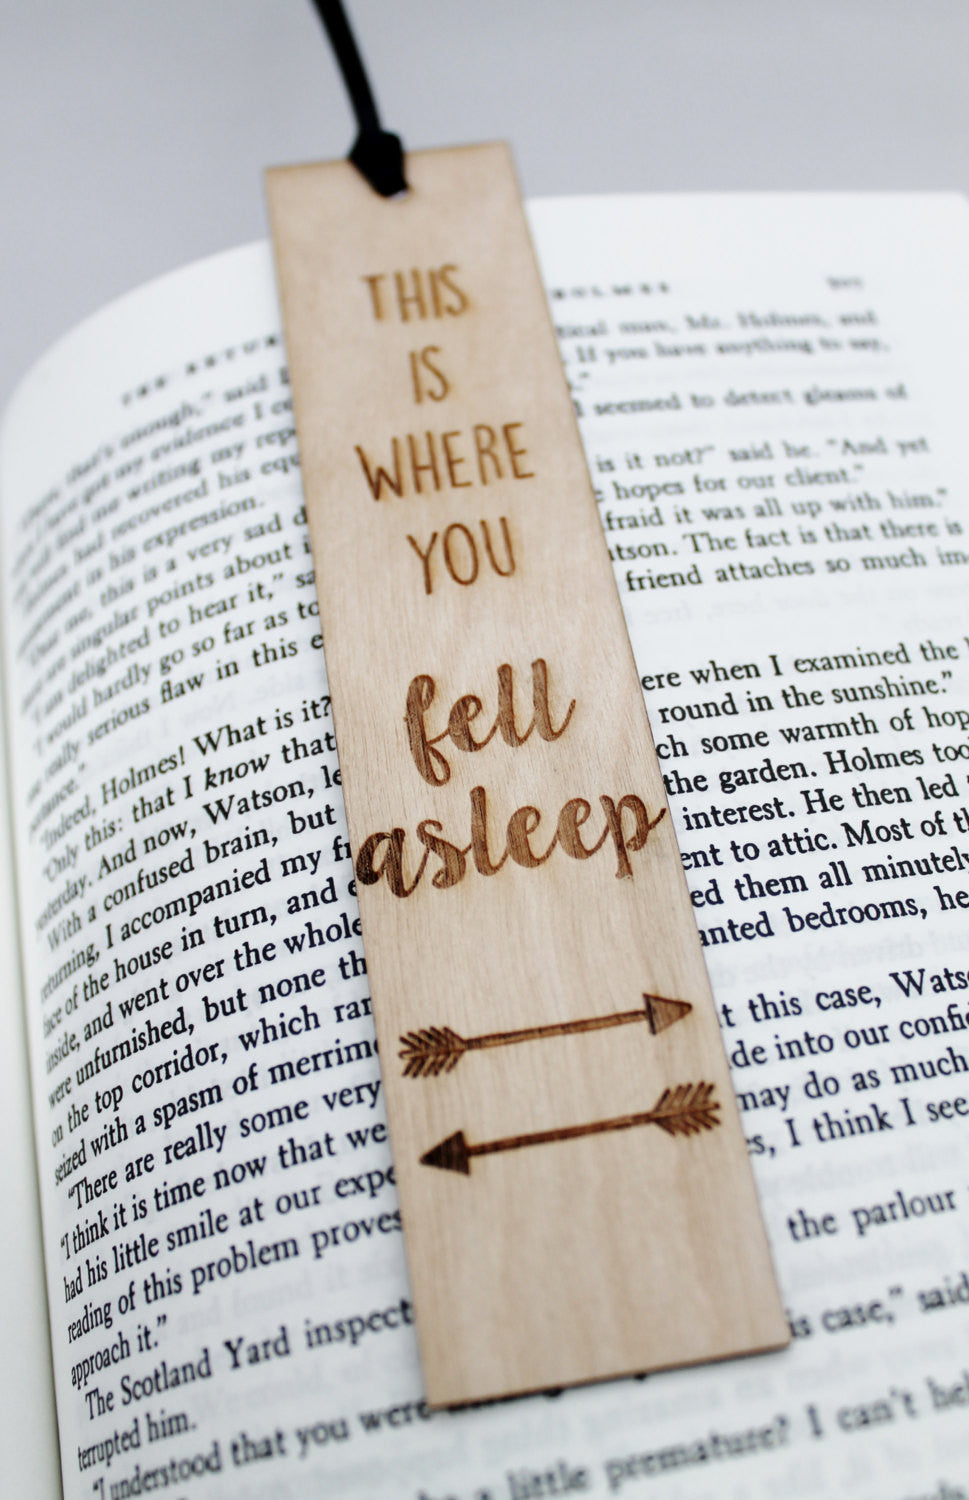 THIS
IS
WHERE
YOU
fell
asleep
THE RETUR
enough," said
my evidence I
writing my rep
had recovered his equ
in his expression.
me, this is a very sad
are singular points about
"I am delighted to hear it," sa
"I would hardly go so far as to
really serious flaw in this e
"Indeed, Holmes! What is it?
"Only this: that I know that
yesterday. And now, Watson, le
With a confused brain, but
returning, I accompanied my fr
face of the house in turn, and e
inside, and went over the whole
were unfurnished, but none th
on the top corridor, which ran
seized with a spasm of merrime
"There are really some very
"I think it is time now that we
had his little smile at our expe
reading of this problem proves
approach it."
The Scotland Yard inspect
terrupted him.
"I understood that you were
OLMES
tical man, Mr. Holmes, and
If you have anything to say,
seemed to detect gleams of
is it not?" said he. "And yet
hopes for our client."
fraid it was all up with him."
tson. The fact is that there is
friend attaches so much im
ere when I examined the
round in the sunshine."
ch some warmth of hop
the garden. Holmes too
interest. He then led
ent to attic. Most of th
ed them all minutely
anted bedrooms, he
t this case, Watso
de into our confi
may do as much
es, I think I see
the parlour
is case," said
a little premature? I can't hel